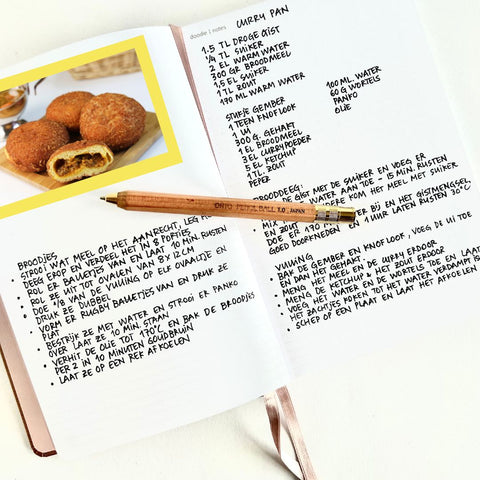 CURRY PAN
doodle | notes
1.5 TL DROGE GIST
1/4 TL SUIKER
2 EL WARM WATER
300 GR BROODMEEL
1,5 EL SUIKER
1 TL ZOUT
170 ML WARM WATER
STUKJE GEMBER
1 TEEN KNOFLOOK
1 UI
300 G. GEHAKT
1 EL BROODMEEL
3 EL CURRYPOEDER
5 EL KETCHUP
1 TL. ZOUT
PEPER
100 ML WATER
60 G WORTELS
PANKO
OLIE
BROODDEEG:
DE GIST MET DE SUIKER EN VOEG ER
WATER AAN TOE & 15 MIN. RUSTEN
MIX KOM HET MEEL MET SUIKER
EN ZOUT BIJ HET GISTMENGSEL
DOE ER 170 ML
GOED DOORKNEDEN EN 1 UUR LATEN RUSTEN 30°C
VULLING
BAK DE GEMBER EN KNOFLOOK, VOEG DE UI TOE
EN DAN HET GEHAKT.
MENG HET MEEL EN DE CURRY ERDOOR
MENG DE KETCHUP & HET ZOUT ERDOOR
VOEG HET WATER EN DE WORTELS TOE EN LAAT
HET ZACHTJES KOKEN TOT HET WATER VERDAMPT IS
SCHEP OP EEN PLAAT EN LAAT HET AFKOELEN
OHTO PENCIL BALL 1.0 JAPAN
BROODJES
STROOI WAT MEEL OP HET AANRECHT, LEG HET
DEEG EROP EN VERDEEL HET IN 8 PORTIES
ROL ER BALLETJES VAN EN LAAT 10 MIN. RUSTEN
ROL ZE UIT TOT OVALEN VAN 8 X 12 CM
DOE 1/8 VAN DE VULLING OP ELK OVAALTJE EN
DRUK ZE DUBBEL
VORM ER RUGBY BALLETJES VAN EN DRUK ZE
PLAT
BESTRIJK ZE MET WATER EN STROOI ER PANKO
OVER LAAT ZE 10 MIN. STAAN
VERHIT DE OLIE TOT 170°C EN BAK DE BROODJES
PER 2 IN 10 MINUTEN GOUDBRUIN
LAAT ZE OP EEN REK AFKOELEN